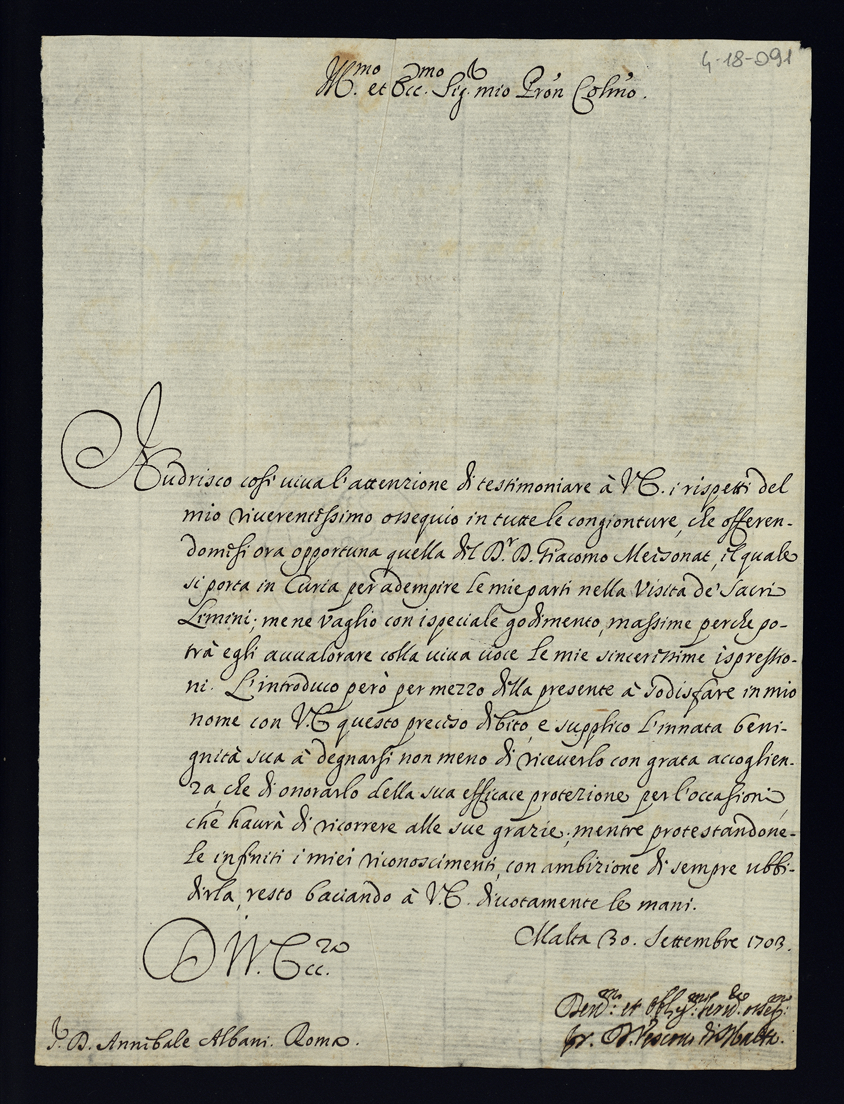 4-18-091
Ill.mo et Ecc.mo Sig.r mio Pron Colmo.
Nudrisco così viva l'attenzione di testimoniare à V.E. i rispetti del
mio riverentissimo ossequio in tutte le congionture, che offeren-
domisi ora opportuna quella del D.r D. Giacomo Meisonat, il quale
si porta in Curia per adempire le mie parti nella Visita de' Sacri
Limini; me ne vaglio con ispeciale godimento, massime perche po-
trà egli avvalorare colla viva voce le mie sincerissime ispressio-
ni. L'introduco però per mezzo della presente à sodisfare in mio
nome con V.E. questo preciso debito, e supplico l'innata beni-
gnità sua à degnarsi non meno di riceverlo con grata accoglien-
za, che di onorarlo della sua efficace protezione per l'occasioni,
che haurà di ricorrere alle sue grazie; mentre protestandone-
le infiniti i miei riconoscimenti, con ambizione di sempre ubbi-
dirla, resto baciando à V.E. divotamente le mani.
Malta 30. Settembre 1703.
D V. Ecc.za
Dev.mo et Obblig.mo Serv.re osseq.mo
fr. D. Vescovo di Malta.
S. D. Annibale Albani. Roma.